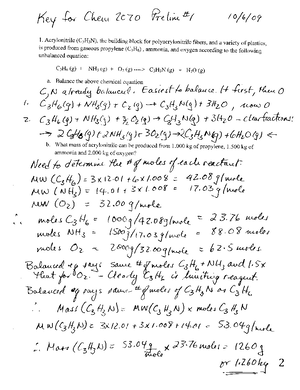 Key for Chem 2C70 Prelim #1 10/6/09
1. Acrylonitrile (C3H3N), the building block for polyacrylonitrile fibers, and a variety of plastics,
is produced from gaseous propylene (C3H6), ammonia, and oxygen according to the following
unbalanced equation:
C3H6 (g) + NH3 (g) + O2 (g) ---> C3H3N (g) + H2O (g)
a. Balance the above chemical equation
C, N already balanced. Easiest to balance H first, then O
1. C3H6(g) + NH3(g) + O2(g) → C3H3N(g) + 3H2O, now O
2. C3H6(g) + NH3(g) + 3/2 O2(g) → C3H3N(g) + 3H2O – clear fractions:
→ 2 C3H6(g) + 2 NH3(g) + 3 O2(g) → 2 C3H3N(g) + 6 H2O(g) ←
b. What mass of acrylonitrile can be produced from 1.000 kg of propylene, 1.500 kg of
ammonia and 2.000 kg of oxygen?
Need to determine the # of moles of each reactant:
MW (C3H6) = 3x12.01 + 6x1.008 = 42.08 g/mole
MW (NH3) = 14.01 + 3x1.008 = 17.03 g/mole
MW (O2) = 32.00 g/mole
∴ moles C3H6 = 1000g/42.08g/mole = 23.76 moles
moles NH3 = 1500g/17.03g/mole = 88.08 moles
moles O2 = 2000g/32.00g/mole = 62.5 moles
Balanced eq. says same # of moles C3H6 + NH3 and 1.5x
that for O2. – Clearly C3H6 is limiting reagent.
Balanced eq. says same # of moles of C3H3N as C3H6
∴ Mass (C3H3N) = MW(C3H3N) x moles C3H3N
MW (C3H3N) = 3x12.01 + 3x1.008 + 14.01 = 53.04 g/mole
∴ Mass (C3H3N) = 53.04 g/mole x 23.76 moles = 1260 g
or 1.260 kg 2